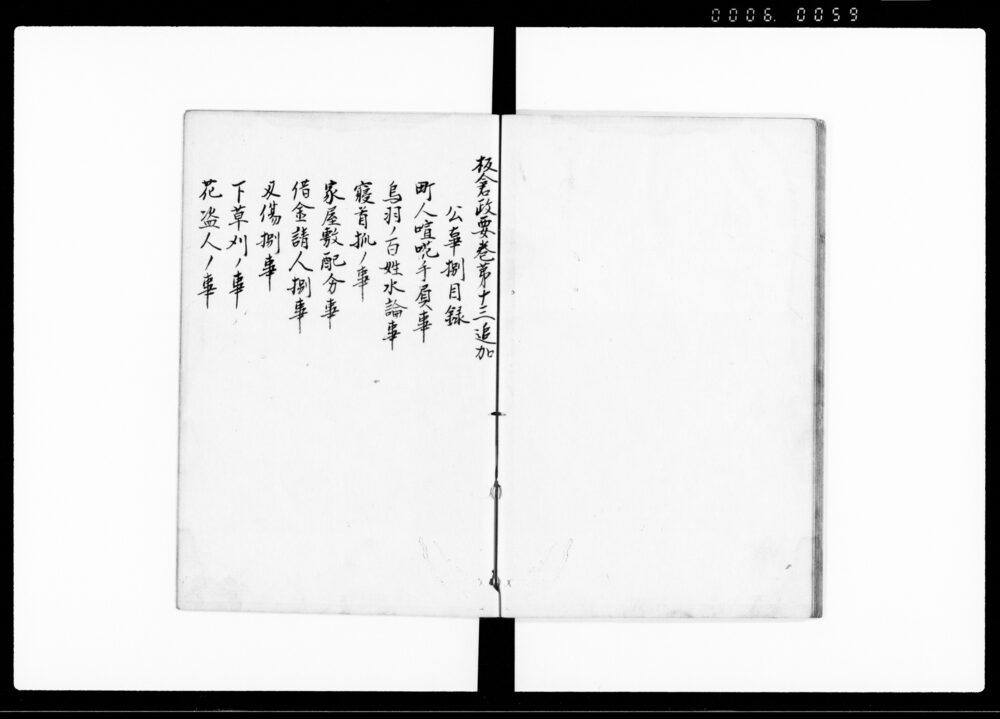 0006. 0059
板倉政要巻第十三追加
公事捌目録
町人喧呢手負事
鳥羽ノ百姓水論事
寝首抓ノ事
家屋敷配分事
借金請人捌事
刃傷捌事
下草刈ノ事
花盗人ノ事